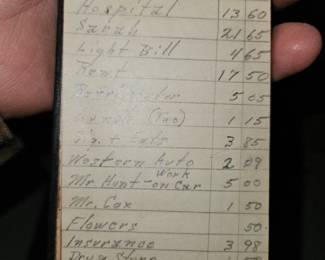 Hospital 13 60
Sarah 21 65
Light Bill 4 65
Rent 17 50
5 05
(Two) 1 15
Eats 3 85
Western Auto 2 09
Mr Hunt - Work on Car 5 00
Mr. Cax 1 50
Flowers 50
Insurance 3 98
Drug Store 1 50